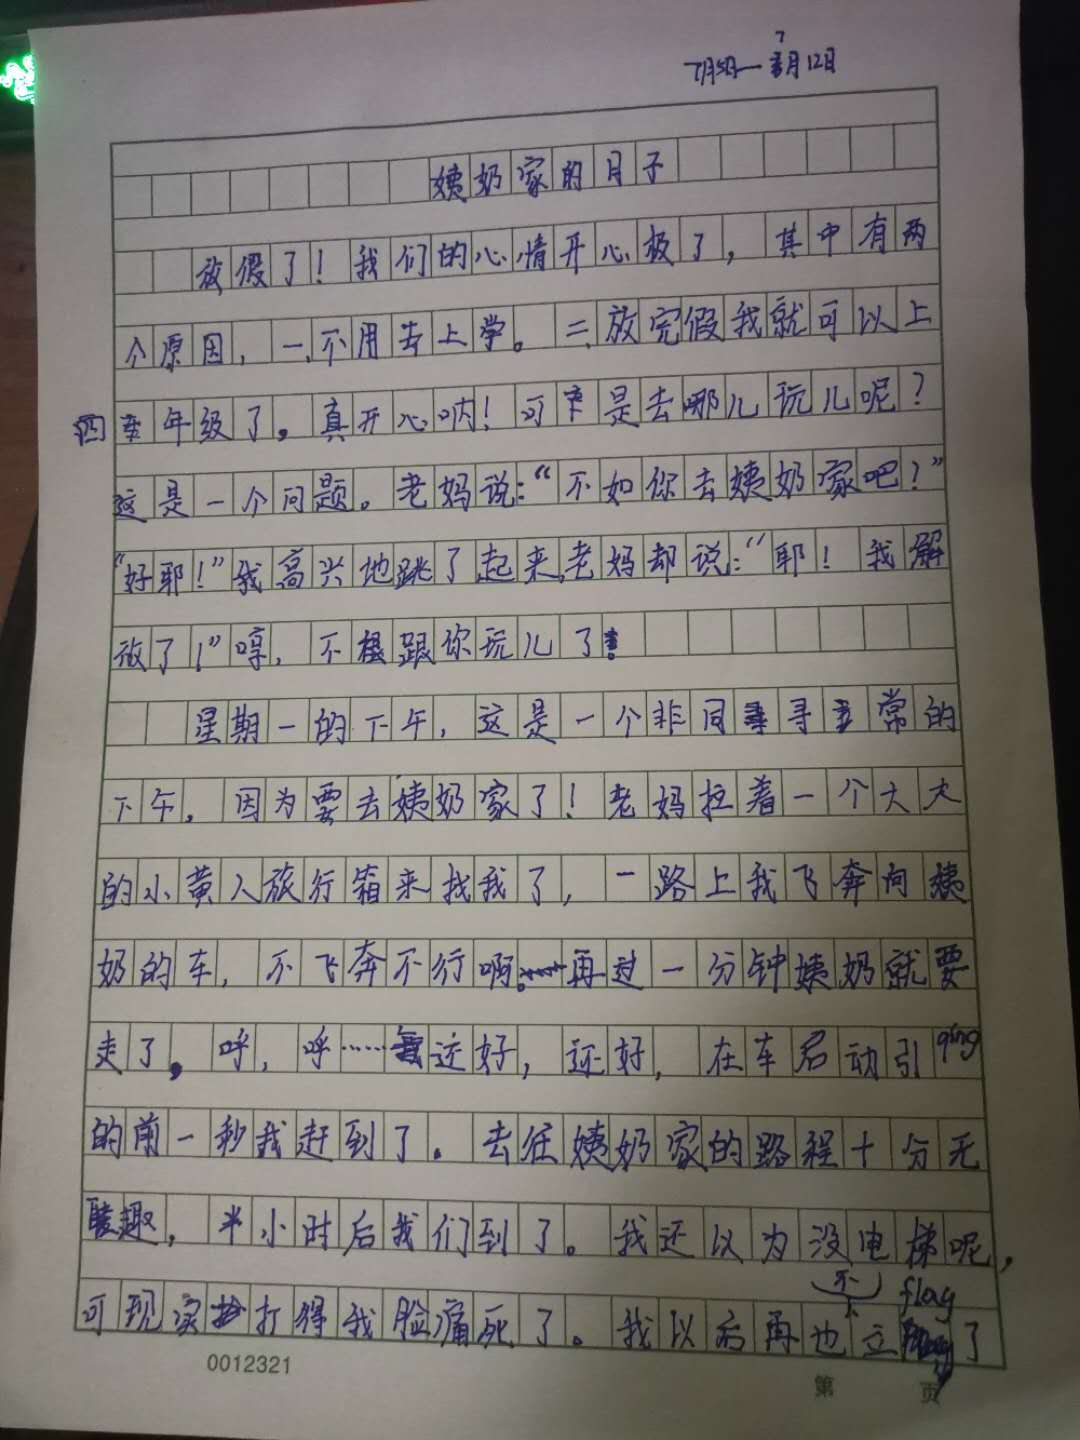 7月5日—7月12日
姨奶家的日子
放假了！我们的心情开心极了，其中有两
个原因，一、不用去上学。二、放完假我就可以上
四年级了。真开心呐！可是去哪儿玩儿呢？
这是一个问题。老妈说：“不如你去姨奶家吧？”
“好耶！”我高兴地跳了起来，老妈却说：“耶！我解
放了！”哼，不跟你玩儿了！
星期一的下午，这是一个非同寻常的
下午，因为要去姨奶家了！老妈拉着一个大大
的小黄人旅行箱来找我了，一路上我飞奔向姨
奶的车，不飞奔不行啊。再过一分钟姨奶就要
走了。呼，呼……还好，还好，在车启动引qíng
的前一秒我赶到了。去往姨奶家的路程十分无
趣，半小时后我们到了。我还以为没电梯呢，
可现实打得我脸痛死了。我以后再也不立flag了
0012321
第 页